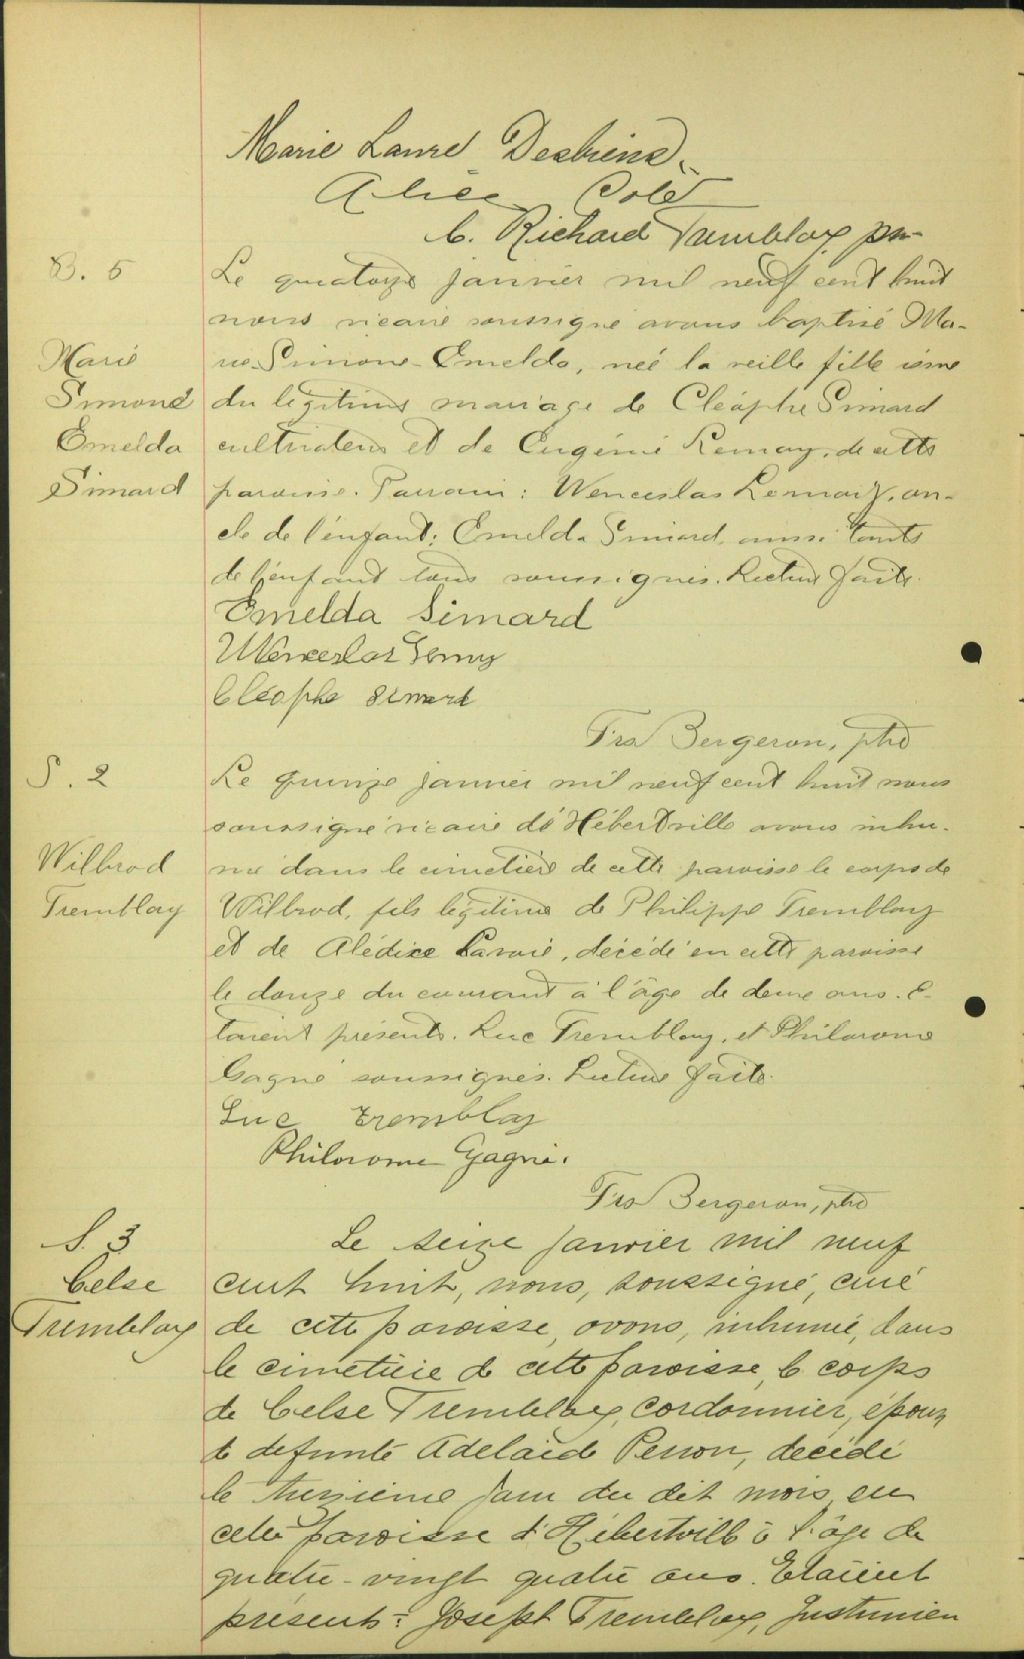 Marie Laure Desbiens.
Alice Coté
C. Richard Tremblay ptr
B. 5
Marie
Simone
Emelda
Simard
Le quatorze janvier mil neuf cent huit
nous vicaire soussigné avons baptisé Ma-
rie-Simone-Emelda, née la veille fille issue
du légitime mariage de Cléophe Simard
cultivateur et de Eugénie Lemay, de cette
paroisse. Parrain: Wenceslas Lemay, on-
cle de l'enfant; Emelda Simard, aussi tante
de l'enfant tous soussignés. Lecture faite.
Emelda Simard
Wenceslas Lemay
Cléophe Simard
Frs Bergeron, ptre
S. 2
Wilbrod
Tremblay
Le quinze janvier mil neuf cent huit nous
soussigné vicaire d'Hébertville avons inhu-
mé dans le cimetière de cette paroisse le corps de
Wilbrod, fils légitime de Philippe Tremblay
et de Alédize Lavoie, décédé en cette paroisse
le douze du courant à l'âge de deux ans. E-
taient présents. Luc Tremblay, et Philorome
Gagné soussignés. Lecture faite.
Luc Tremblay
Philorome Gagné.
Frs Bergeron, ptre
S. 3
Celse
Tremblay
Le seize janvier mil neuf
cent huit, nous, soussigné, curé
de cette paroisse, avons, inhumé, dans
le cimetière de cette paroisse, le corps
de Celse Tremblay, cordonnier, époux
de defunte Adelaide Perron, decédé
le treizième jour du dit mois, en
cette paroisse d'Hébertville à l'âge de
quatre-vingt quatre ans. Etaient
présents: Joseph Tremblay, Justinien